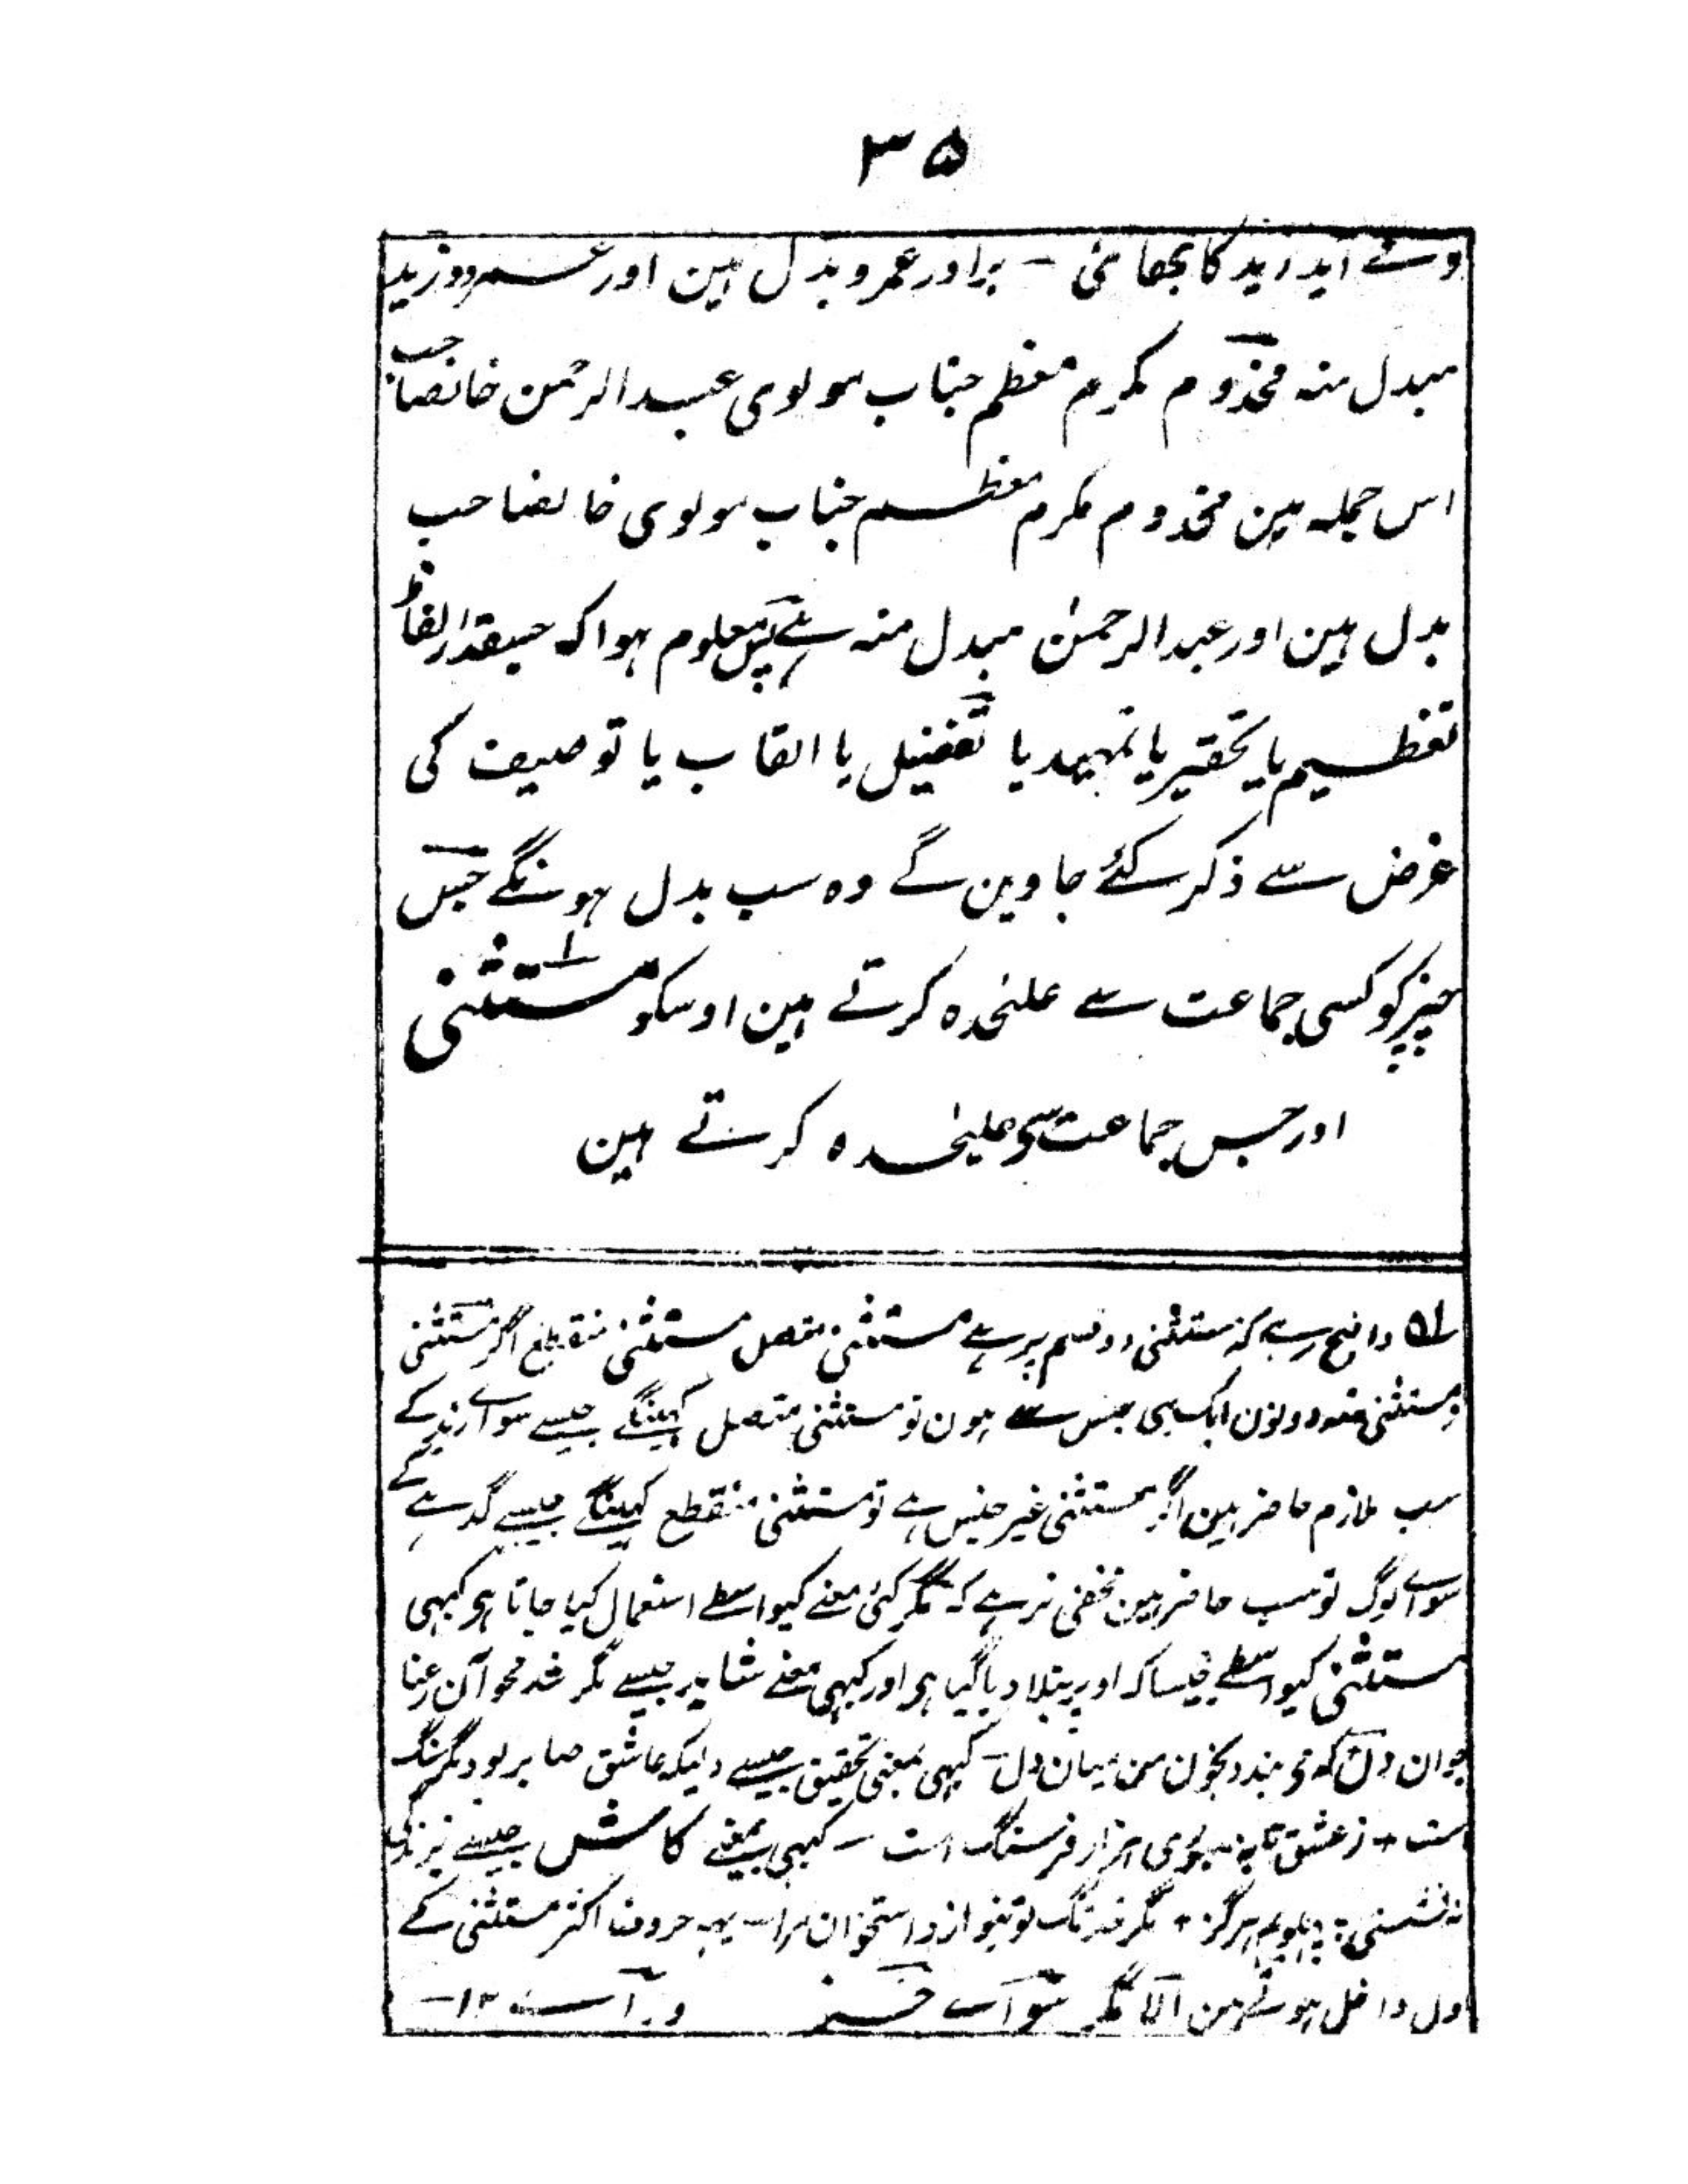 ۳۵
آید زید کا بھائی - برادر عمرو بدل ہین اور عمرو و زید
مبدل منہ مخدوم مکرم معظم جناب مولوی عبدالرحمن خانصاحب
اس جملہ مین مخدوم مکرم معظم جناب مولوی خانصاحب
بدل ہین اور عبدالرحمٰن مبدل منہ ہے پس معلوم ہوا کہ جسقدر الفاظ
تعظیم یا تحقیر یا تمہید یا تفضیل یا القاب یا توصیف کی
غرض سے ذکر کئے جاوین گے وہ سب بدل ہونگے جس
چیز کو کسی جماعت سے علٰحدہ کرتے ہین اوسکو مستثنی ۱
اور جس جماعت سی علیٰحدہ کرتے ہین
۱ واضح رہے کہ مستثنی دو قسم پر ہے مستثنی متصل مستثنی منقطع اگر مستثنی
و مستثنی منہ دونون ایک ہی جنس سے ہون تو مستثنی متصل کہینگے جیسے سواے زید کے
سب ملازم حاضر ہین اگر مستثنی غیر جنس ہے تو مستثنی منقطع کہینگے جیسے گدہے کے
سواے لوگ تو سب حاضر ہین مخفی نرہے کہ مگر کئی معنے کیواسطے استعمال کیا جاتا ہی کبہی
مستثنی کیواسطے جیساکہ اوپر بتلا دیا گیا ہی اور کبہی معنے شاید جیسے مگر شد محو آن رعنا
جوان دل کہ می بندد بخون من میان دل - کبہی بمعنی تحقیق جیسے دلیکہ عاشق صابر بود مگر سنگ
است + ز عشق تا به صبوری ہزار فرسنگ است - کبہی بمعنے کاش جیسے بزندگی
نہ نشستی بہ پہلویم ہرگز + مگر خدنگ تو بنوازد استخوان مرا - یہہ حروف اکثر مستثنی کے
اول داخل ہوتے ہین الا مگر سواے جز وراے ۱۲ -